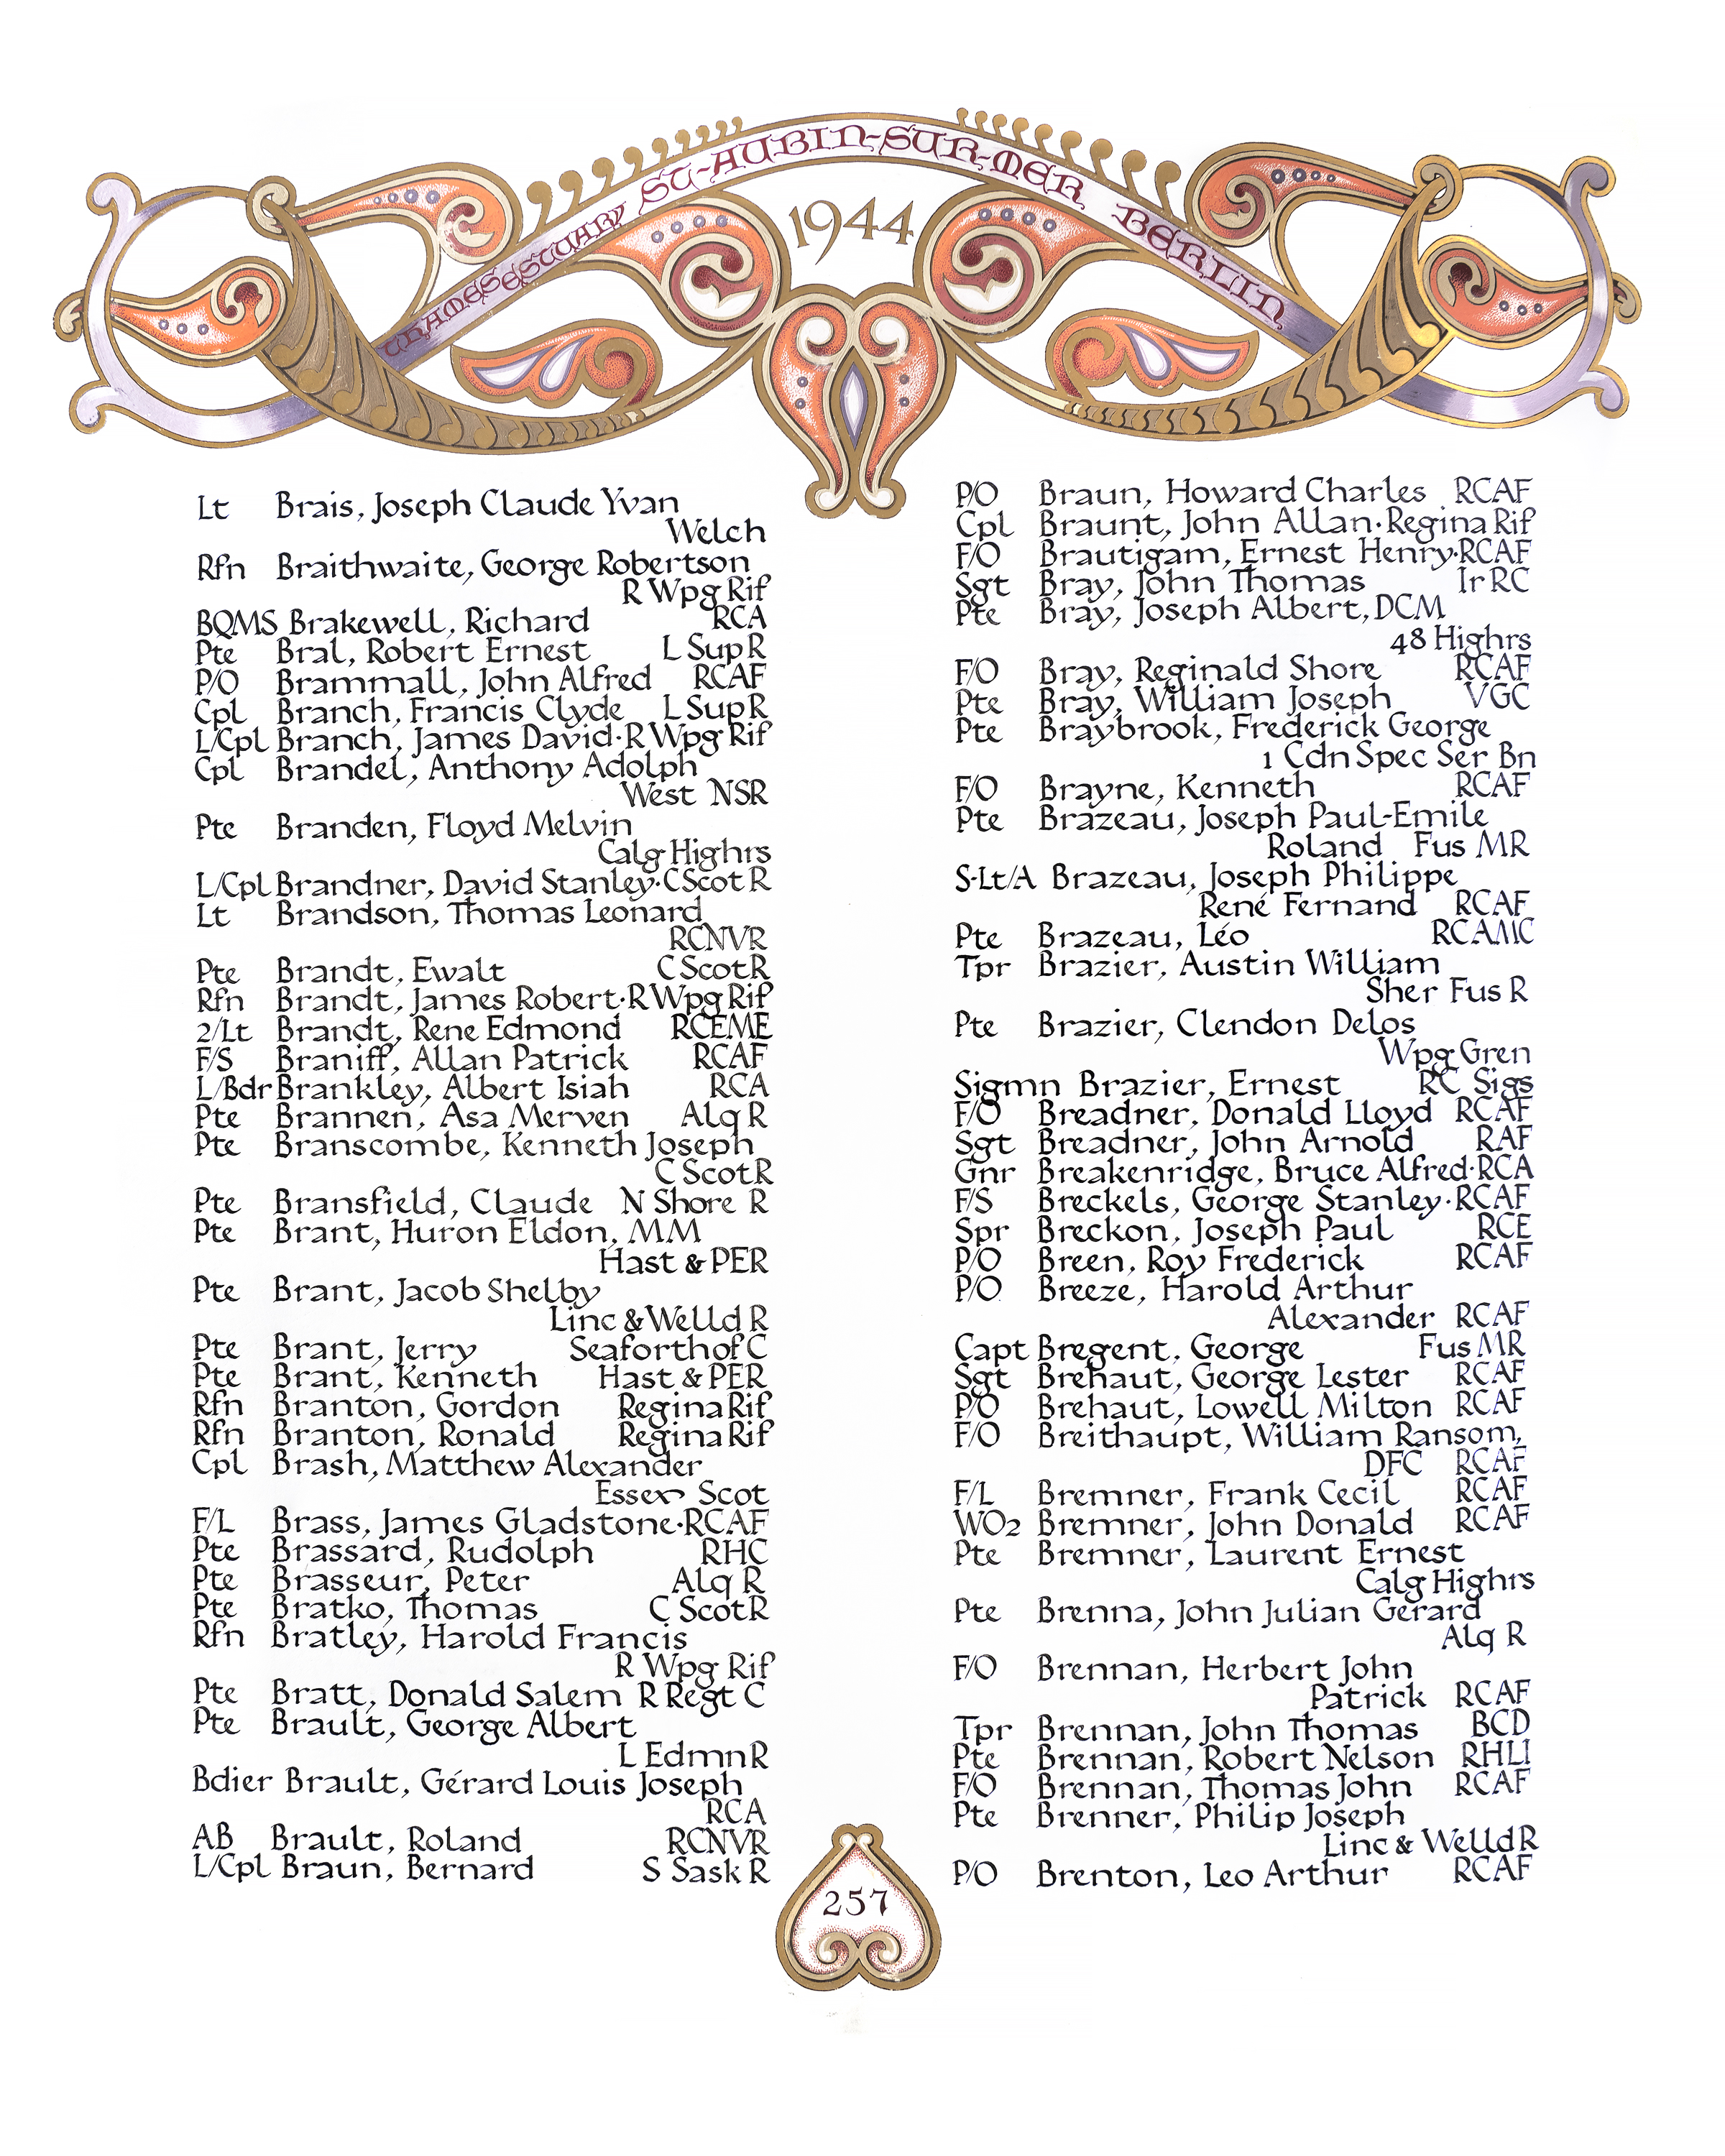 THAMES ESTUARY ST-AUBIN-SUR-MER BERLIN
1944
Lt Brais, Joseph Claude Yvan
Welch
Rfn Braithwaite, George Robertson
R Wpg Rif
BQMS Brakewell, Richard RCA
Pte Bral, Robert Ernest L Sup R
P/O Brammall, John Alfred RCAF
Cpl Branch, Francis Clyde L Sup R
L/Cpl Branch, James David·R Wpg Rif
Cpl Brandel, Anthony Adolph
West NSR
Pte Branden, Floyd Melvin
Calg Highrs
L/Cpl Brandner, David Stanley·C Scot R
Lt Brandson, Thomas Leonard
RCNVR
Pte Brandt, Ewalt C Scot R
Rfn Brandt, James Robert·R Wpg Rif
2/Lt Brandt, Rene Edmond RCEME
F/S Braniff, Allan Patrick RCAF
L/Bdr Brankley, Albert Isiah RCA
Pte Brannen, Asa Merven Alq R
Pte Branscombe, Kenneth Joseph
C Scot R
Pte Bransfield, Claude N Shore R
Pte Brant, Huron Eldon, MM
Hast & PER
Pte Brant, Jacob Shelby
Linc & Welld R
Pte Brant, Jerry Seaforth of C
Pte Brant, Kenneth Hast & PER
Rfn Branton, Gordon Regina Rif
Rfn Branton, Ronald Regina Rif
Cpl Brash, Matthew Alexander
Essex Scot
F/L Brass, James Gladstone·RCAF
Pte Brassard, Rudolph RHC
Pte Brasseur, Peter Alq R
Pte Bratko, Thomas C Scot R
Rfn Bratley, Harold Francis
R Wpg Rif
Pte Bratt, Donald Salem R Regt C
Pte Brault, George Albert
L Edmn R
Bdier Brault, Gérard Louis Joseph
RCA
AB Brault, Roland RCNVR
L/Cpl Braun, Bernard S Sask R
P/O Braun, Howard Charles RCAF
Cpl Braunt, John Allan·Regina Rif
F/O Brautigam, Ernest Henry·RCAF
Sgt Bray, John Thomas Ir RC
Pte Bray, Joseph Albert, DCM
48 Highrs
F/O Bray, Reginald Shore RCAF
Pte Bray, William Joseph VGC
Pte Braybrook, Frederick George
1 Cdn Spec Ser Bn
F/O Brayne, Kenneth RCAF
Pte Brazeau, Joseph Paul-Emile
Roland Fus MR
S-Lt/A Brazeau, Joseph Philippe
René Fernand RCAF
Pte Brazeau, Léo RCAMC
Tpr Brazier, Austin William
Sher Fus R
Pte Brazier, Clendon Delos
Wpg Gren
Sigmn Brazier, Ernest RC Sigs
F/O Breadner, Donald Lloyd RCAF
Sgt Breadner, John Arnold RAF
Gnr Breakenridge, Bruce Alfred·RCA
F/S Breckels, George Stanley·RCAF
Spr Breckon, Joseph Paul RCE
P/O Breen, Roy Frederick RCAF
P/O Breeze, Harold Arthur
Alexander RCAF
Capt Bregent, George Fus MR
Sgt Brehaut, George Lester RCAF
P/O Brehaut, Lowell Milton RCAF
F/O Breithaupt, William Ransom,
DFC RCAF
F/L Bremner, Frank Cecil RCAF
WO2 Bremner, John Donald RCAF
Pte Bremner, Laurent Ernest
Calg Highrs
Pte Brenna, John Julian Gerard
Alq R
F/O Brennan, Herbert John
Patrick RCAF
Tpr Brennan, John Thomas BCD
Pte Brennan, Robert Nelson RHLI
F/O Brennan, Thomas John RCAF
Pte Brenner, Philip Joseph
Linc & Welld R
P/O Brenton, Leo Arthur RCAF
257